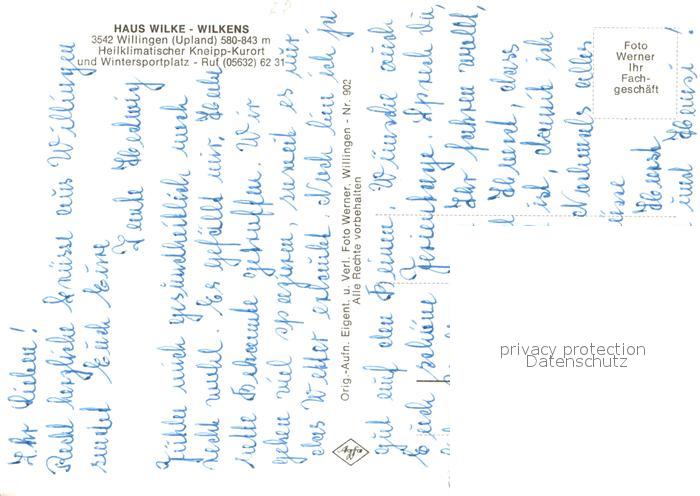 HAUS WILKE - WILKENS
3542 Willingen (Upland) 580-843 m
Heilklimatischer Kneipp-Kurort
und Wintersportplatz - Ruf (05632) 62 31
Foto
Werner
Ihr
Fach-
geschäft
Orig.-Aufn. Eigent. u. Verl. Foto Werner, Willingen - Nr. 902
Alle Rechte vorbehalten
Agfa
Ihr Lieben!
Recht herzliche Grüsse aus Willingen
sendet Euch Eure
Tante Hedwig
Fühle mich gesundheitlich noch
recht wohl. Es gefällt mir. Habe
nette Bekannte getroffen. Wir
gehen viel spazieren, soweit es nur
das Wetter erlaubt. Noch bin ich ja
gut auf den Beinen. Wünsche auch
Euch schöne Ferientage.
Ihr fahren wollt,
Horst, dass
ist, damit ich
Nochmals alles
Horst
und Heusi!
privacy protection
Datenschutz